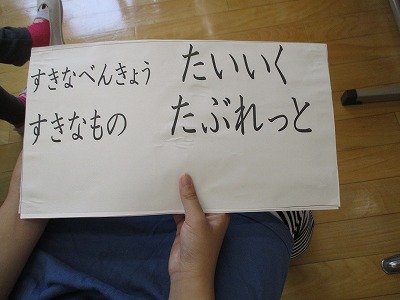 すきなべんきょう たいいく
すきなもの たぶれっと